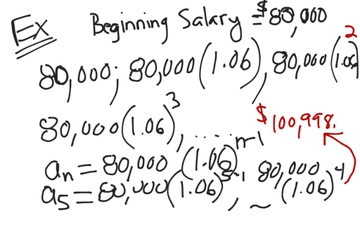 Ex Beginning Salary = $80,000
80,000; 80,000(1.06), 80,000(1.06)²
80,000(1.06)³, ..... $100,998.
aₙ = 80,000 (1.06)ⁿ⁻¹
a₅ = 80,000(1.06)⁵⁻¹, ~ 80,000(1.06)⁴